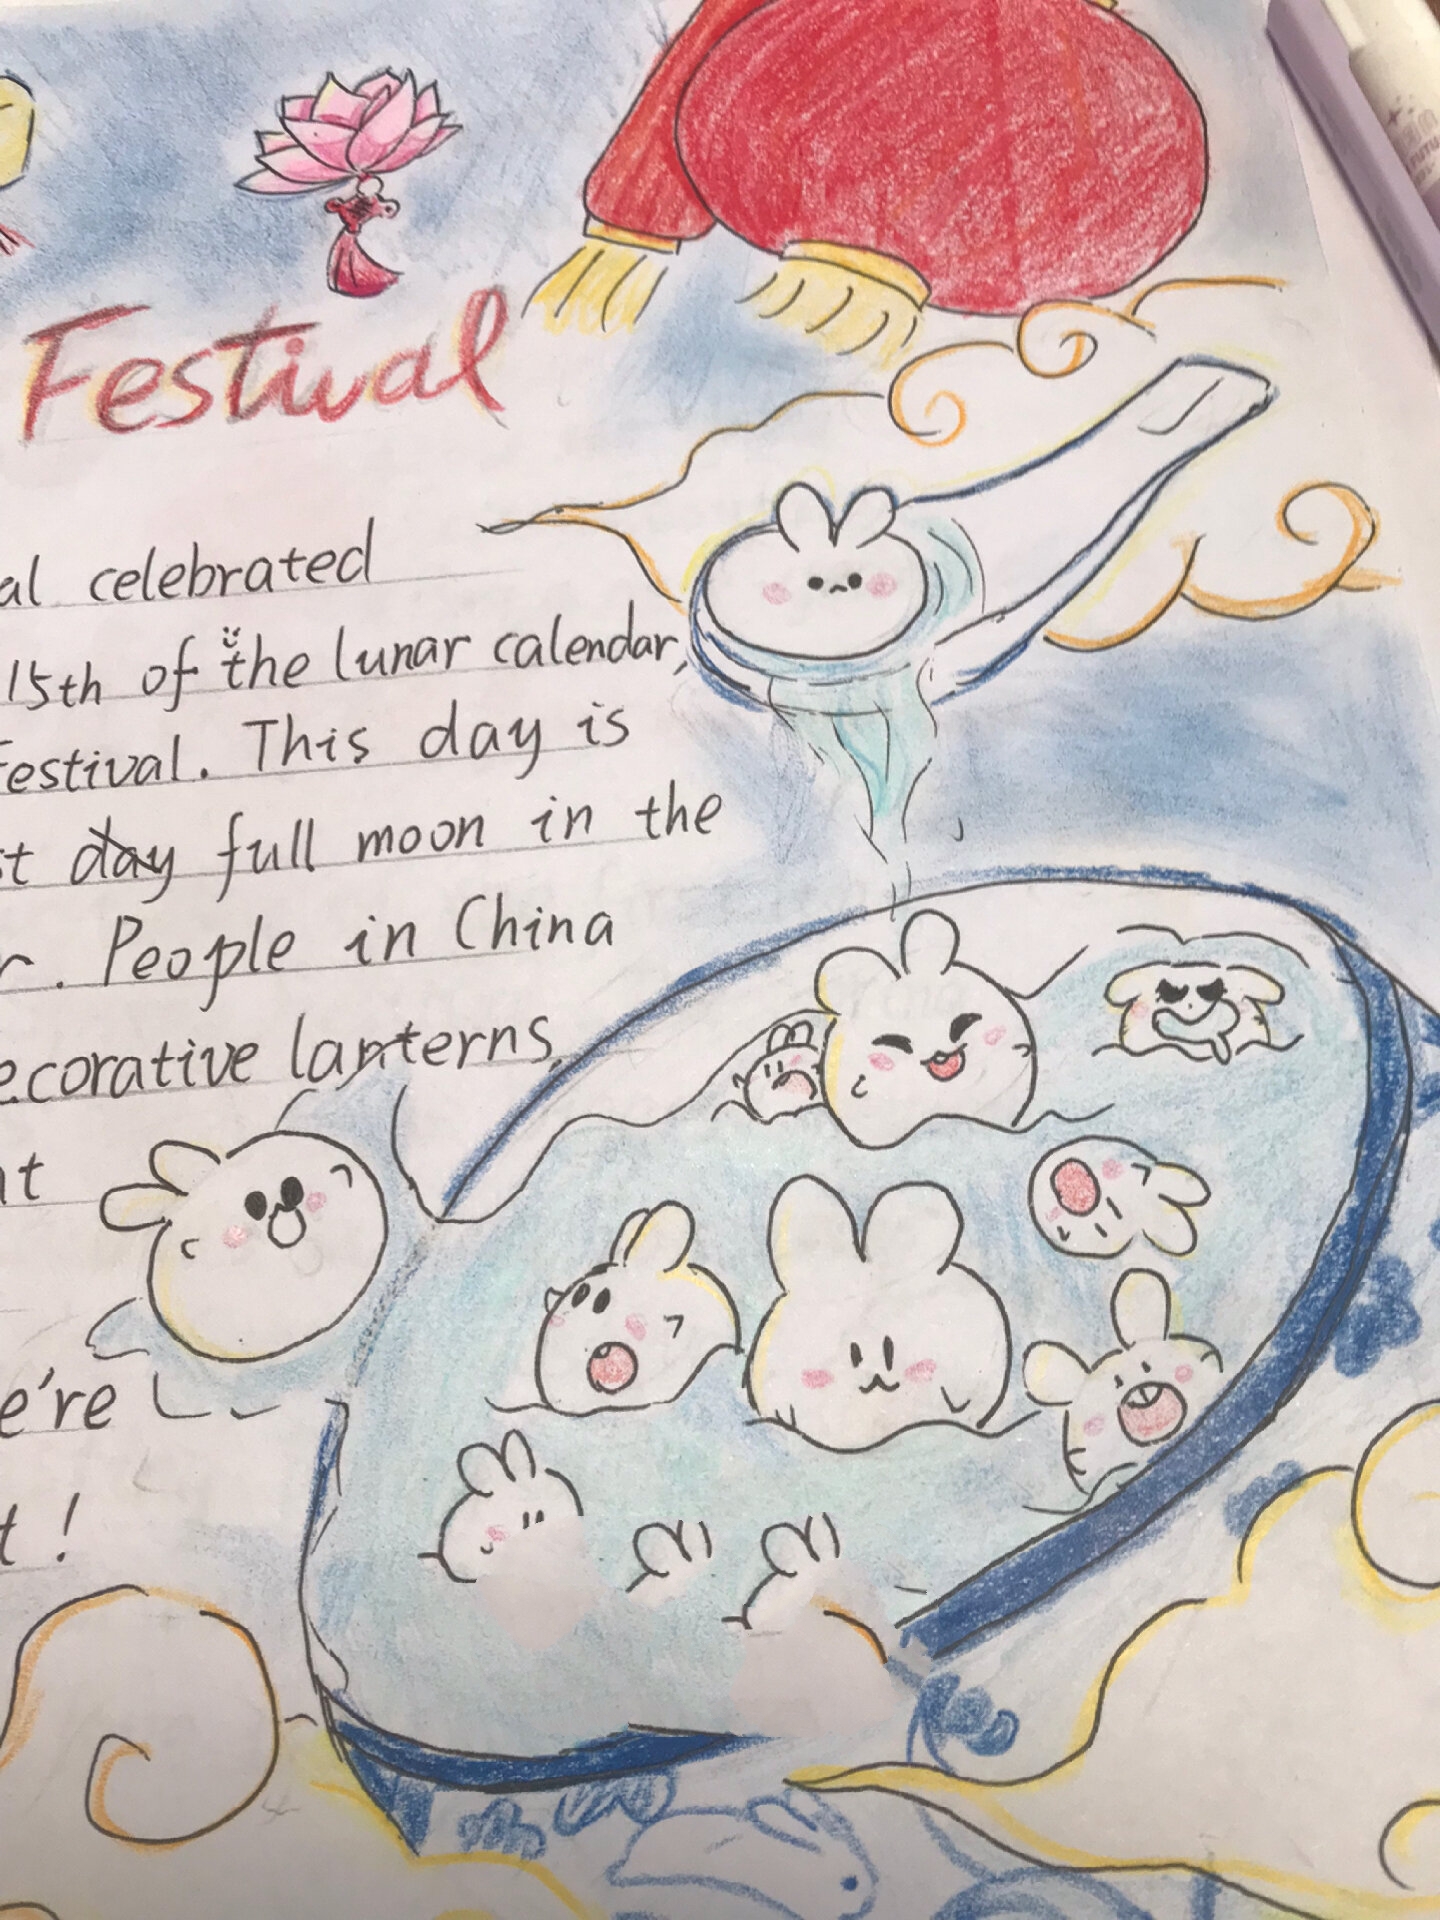 Festival
al celebrated
15th of the lunar calendar,
Festival. This day is
st day full moon in the
r. People in China
ecorative lanterns,
at
e're
t!